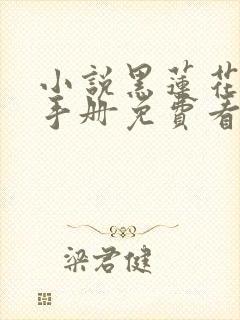 小說黑蓮花
手册免費看
梁君健